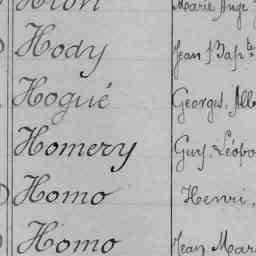 Hody Jean Bapte
Hogué Georges, Alb
Homery Guy, Léopo
Homo Henri,
Homo Jean Mar